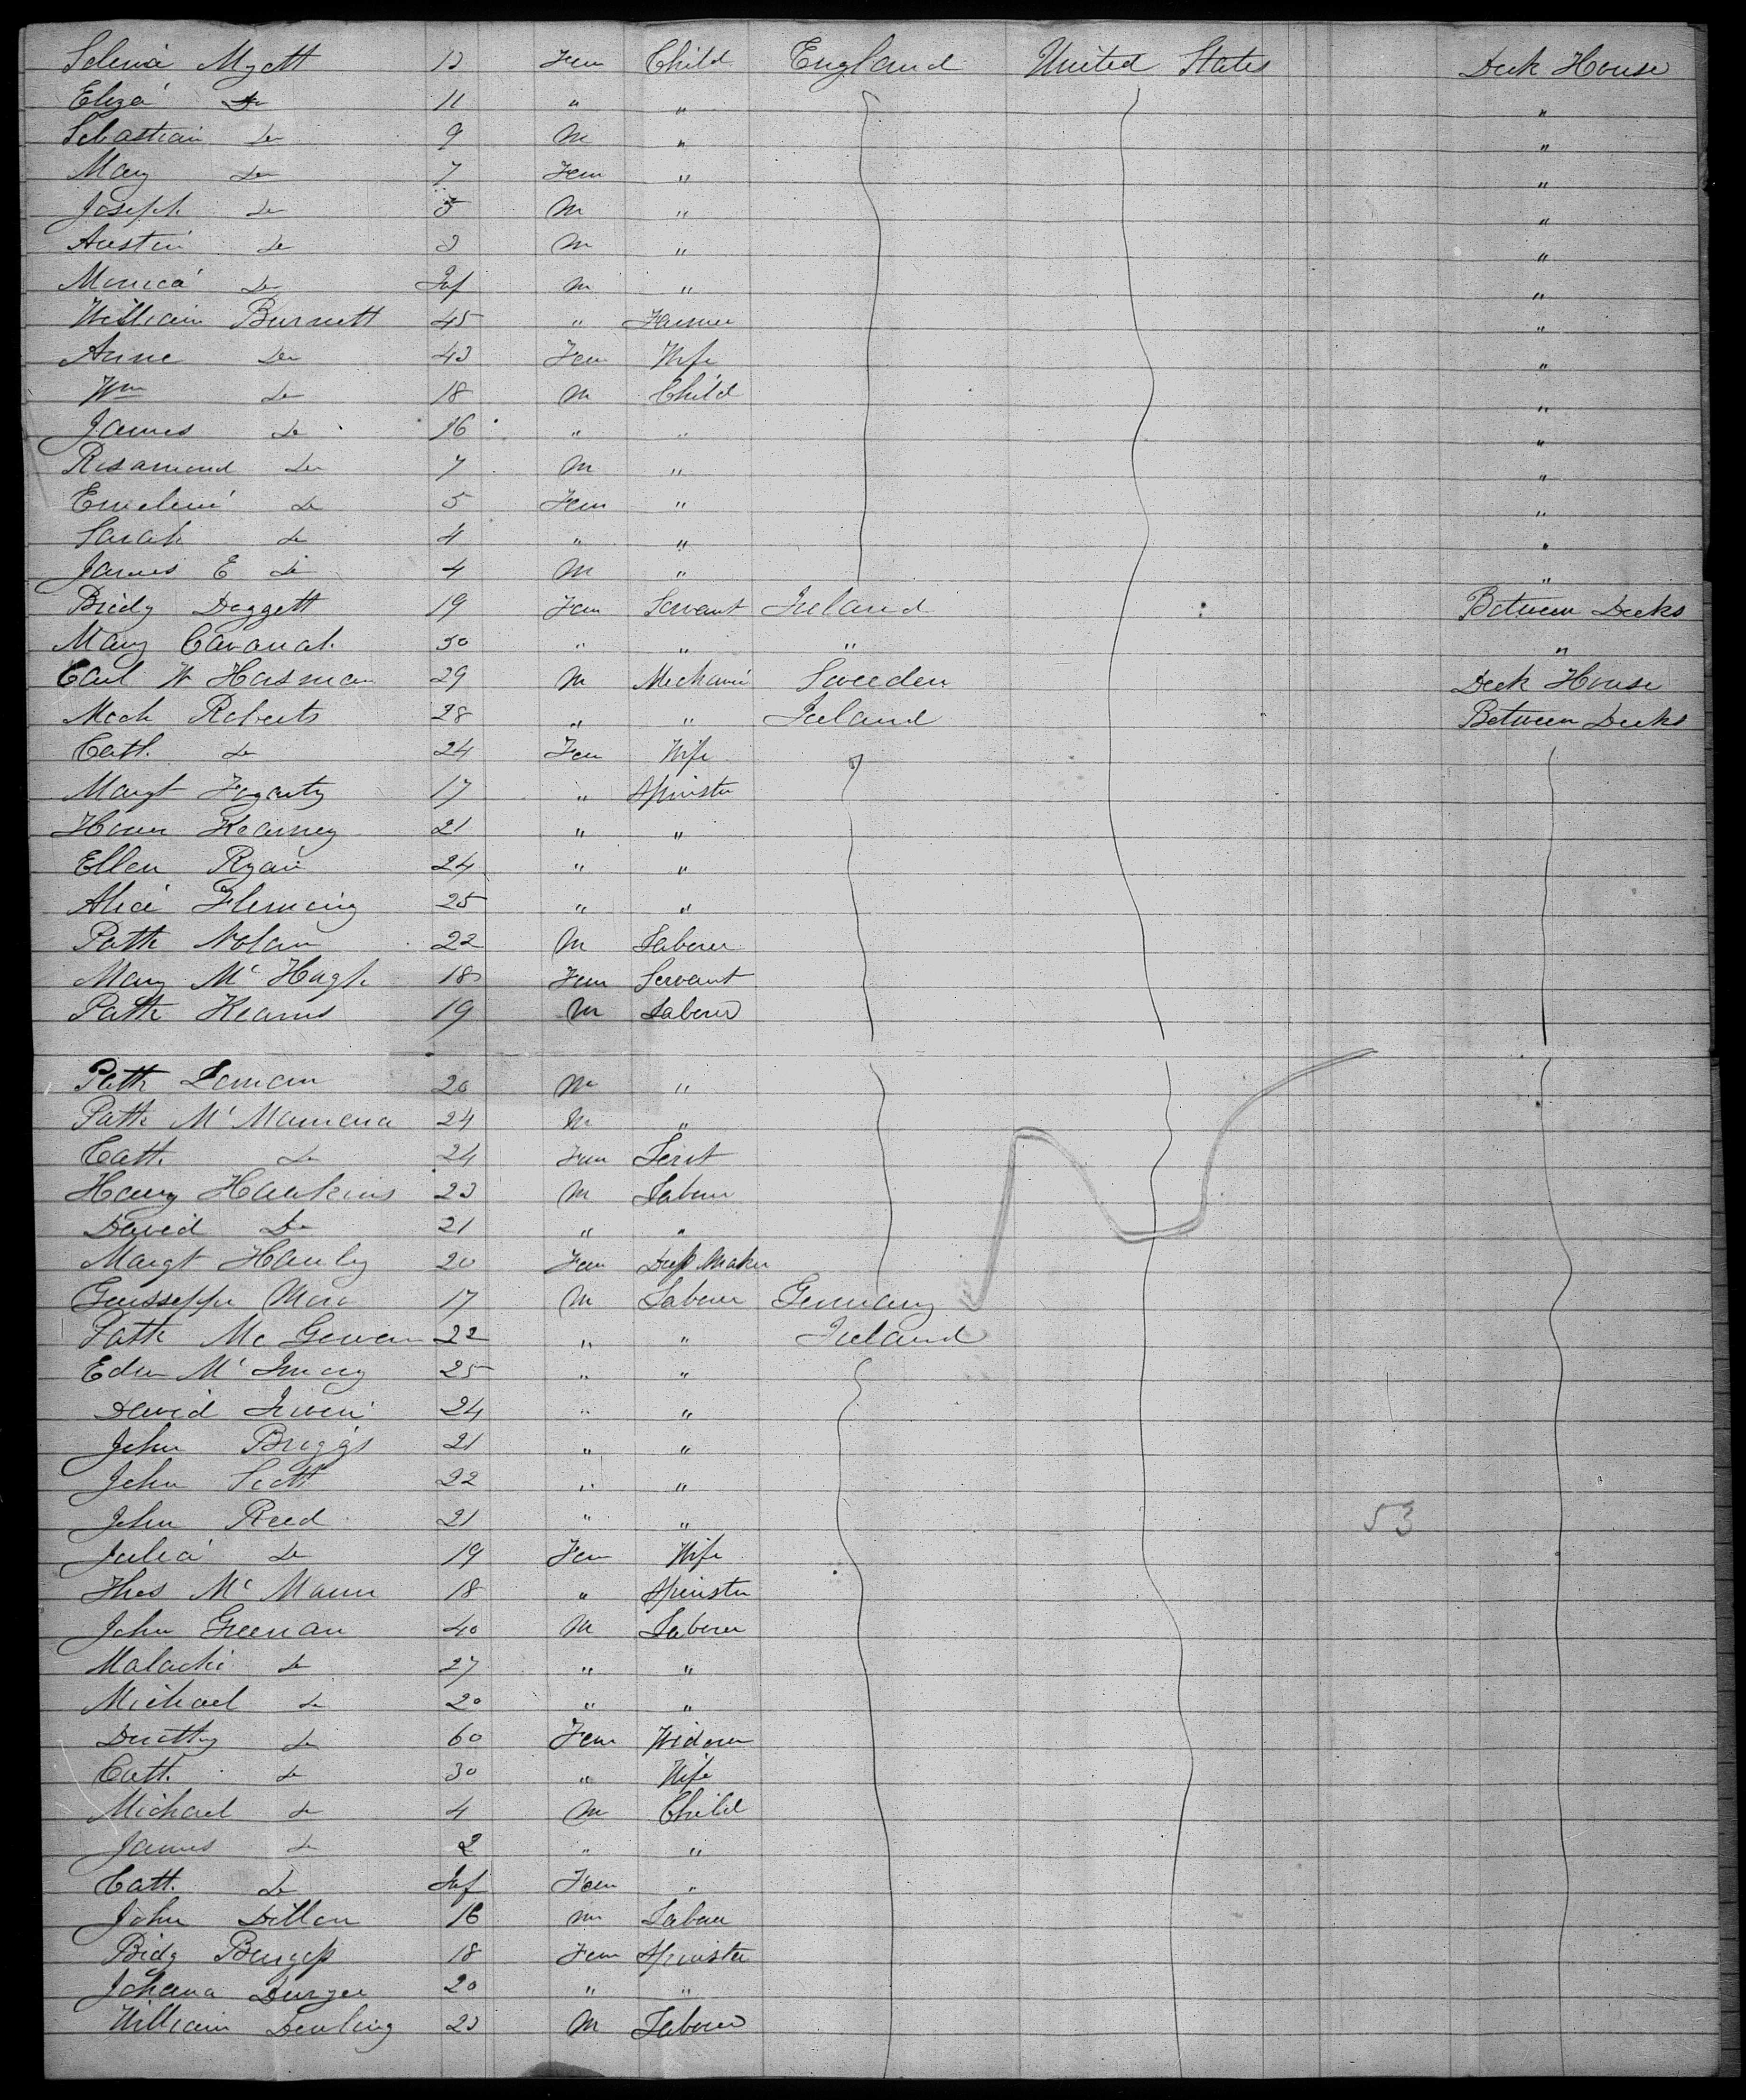 Selina Myatt 13 Fem Child England United States Deck House
Eliza Do 11 " " "
Sebastian Do 9 M " "
Mary Do 7 Fem " "
Joseph Do 5 M " "
Austin Do 3 M " "
Monica Do Inf M " "
William Burnett 45 " Farmer "
Anne Do 43 Fem Wife "
Wm Do 18 M Child "
James Do 16 " " "
Rosamond Do 7 M " "
Emeline Do 5 Fem " "
Sarah Do 4 " " "
James E Do 4 M " "
Bridy Doggett 19 Fem Servant Ireland Between Decks
Mary Cavanah 30 " " " "
Carl W Hasman 29 M Mechanic Sweeden Deck House
Mich Roberts 28 " " Ireland Between Decks
Cath Do 24 Fem Wife
Margt Fogarty 17 " Spinster
Honor Kearney 21 " "
Ellen Ryan 24 " "
Alice Fleming 25 " "
Patk Nolan 22 M Laborer
Mary Mc Hugh 18 Fem Servant
Patk Kearns 19 M Laborer
Patk 20 M "
Patk Mc 24 M "
Cath Do 24 Fem Servt
Harry Hawkins 23 M Laborer
David Do 21 " "
Margt Hanley 20 Fem Dress Maker
Guisseppe 17 M Laborer Germany
Patk Mc Gowan 22 " " Ireland
Edw Mc 25 " "
David Irwin 24 " "
John Briggs 21 " "
John Scott 22 " "
John Reed 21 " " 53
Julia Do 19 Fem Wife
Thos Mc Mann 18 " Spinster
John Greenan 40 M Laborer
Malachi Do 27 " "
Michael Do 20 " "
Do 60 Fem Widow
Cath Do 30 " Wife
Michael Do 4 M Child
James Do 2 " "
Cath Do Inf Fem "
John Dillon 16 M Laborer
Bidy Burgess 18 Fem Spinster
Johana 20 " "
William 23 M Laborer